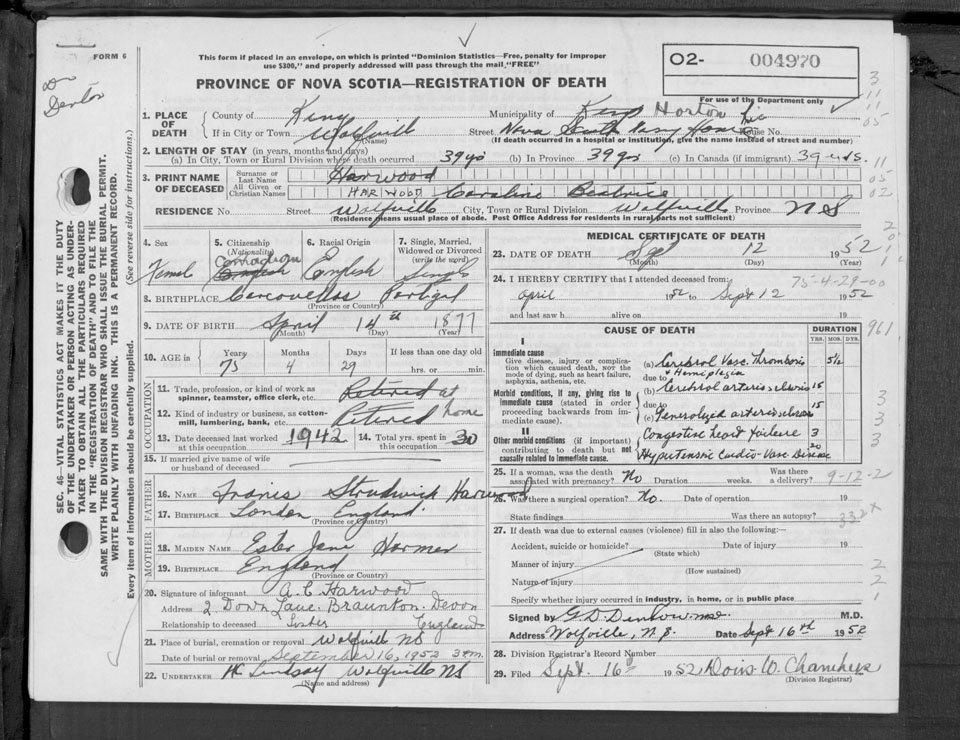 FORM 6
This form if placed in an envelope, on which is printed "Dominion Statistics—Free, penalty for improper
use $300," and properly addressed will pass through the mail "FREE"
PROVINCE OF NOVA SCOTIA—REGISTRATION OF DEATH
O2- 004970
For use of the Department only
SEC. 46 VITAL STATISTICS ACT MAKES IT THE DUTY
OF THE UNDERTAKER OR PERSON ACTING AS UNDER-
TAKER TO OBTAIN ALL THE PARTICULARS REQUIRED
IN THE "REGISTRATION OF DEATH" AND TO FILE THE
SAME WITH THE DIVISION REGISTRAR WHO SHALL ISSUE THE BURIAL PERMIT.
WRITE PLAINLY WITH UNFADING INK. THIS IS A PERMANENT RECORD.
Every item of information should be carefully supplied. (See reverse side for instructions.)
1. PLACE OF DEATH
County of Kings Municipality of Kings Horton
If in City or Town Wolfville (Name) Street Nova South House No.
(If death occurred in a hospital or institution, give the name instead of street and number)
2. LENGTH OF STAY (in years, months and days)
(a) In City, Town or Rural Division where death occurred 39 yrs (b) In Province 39 yrs (c) In Canada (if immigrant) 39 yrs.
3. PRINT NAME OF DECEASED
Surname or Last Name Harwood
All Given or Christian Names HARWOOD Caroline Beatrice
RESIDENCE No. Street Wolfville City, Town or Rural Division Wolfville Province NS
(Residence means usual place of abode. Post Office Address for residents in rural parts not sufficient)
4. Sex Female
5. Citizenship (Nationality) Canadian English
6. Racial Origin English
7. Single, Married, Widowed or Divorced (write the word) Single
8. BIRTHPLACE Carcavellos Portigal
(Province or Country)
9. DATE OF BIRTH April 14th 1877
(Month) (Day) (Year)
10. AGE in Years 75 Months 4 Days 29 If less than one day old hrs. or min.
OCCUPATION
11. Trade, profession, or kind of work as spinner, teamster, office clerk, etc. Retired at home
12. Kind of industry or business, as cotton-mill, lumbering, bank, etc. Retired
13. Date deceased last worked at this occupation 1942 14. Total yrs. spent in this occupation 30
15. If married give name of wife or husband of deceased
FATHER
16. NAME Francis Strudwick Harwood
17. BIRTHPLACE London England
(Province or Country)
MOTHER
18. MAIDEN NAME Ester Jane Harmer
19. BIRTHPLACE England
(Province or Country)
20. Signature of informant A. C Harwood
Address 2 Down Lane. Braunton. Devon
Relationship to deceased Sister England
21. Place of burial, cremation or removal Wolfville NS
Date of burial or removal September 16, 1952 3 Pm.
22. UNDERTAKER Lindsay Wolfville NS
(Name and address)
MEDICAL CERTIFICATE OF DEATH
23. DATE OF DEATH Sept 12 1952
(Month) (Day) (Year)
75-4-29-00
24. I HEREBY CERTIFY that I attended deceased from:
April 1952 to Sept 12 1952
and last saw h alive on 19
CAUSE OF DEATH DURATION
YRS. MOS. DYS.
I
Immediate cause
Give disease, injury or complication which caused death, not the mode of dying, such as heart failure, asphyxia, asthenia, etc.
(a) Cerebral Vasc. Thrombosis + Hemiplegia 5½
due to
Morbid conditions, if any, giving rise to immediate cause (stated in order proceeding backwards from immediate cause).
(b) Cerebral arteriosclerosis 15
due to
(c) Generalized arteriosclerosis 15
II
Other morbid conditions (if important) contributing to death but not causally related to immediate cause.
Congestive heart failure 3
Hypertensive Cardio-Vasc Disease 20
25. If a woman, was the death associated with pregnancy? No Duration weeks. Was there a delivery?
9-12-2
26. Was there a surgical operation? No. Date of operation 19
State findings Was there an autopsy?
332X
27. If death was due to external causes (violence) fill in also the following:—
Accident, suicide or homicide? Date of injury 19
(State which)
Manner of injury
(How sustained)
Nature of injury
Specify whether injury occurred in industry, in home, or in public place
Signed by M.D.
Address Wolfville, N.S. Date Sept 16th 1952
28. Division Registrar's Record Number
29. Filed Sept. 16th 1952 Doris W. Chambers
(Division Registrar)
3
11
11
05
11
05
02
961
3
3
3
2
2
1